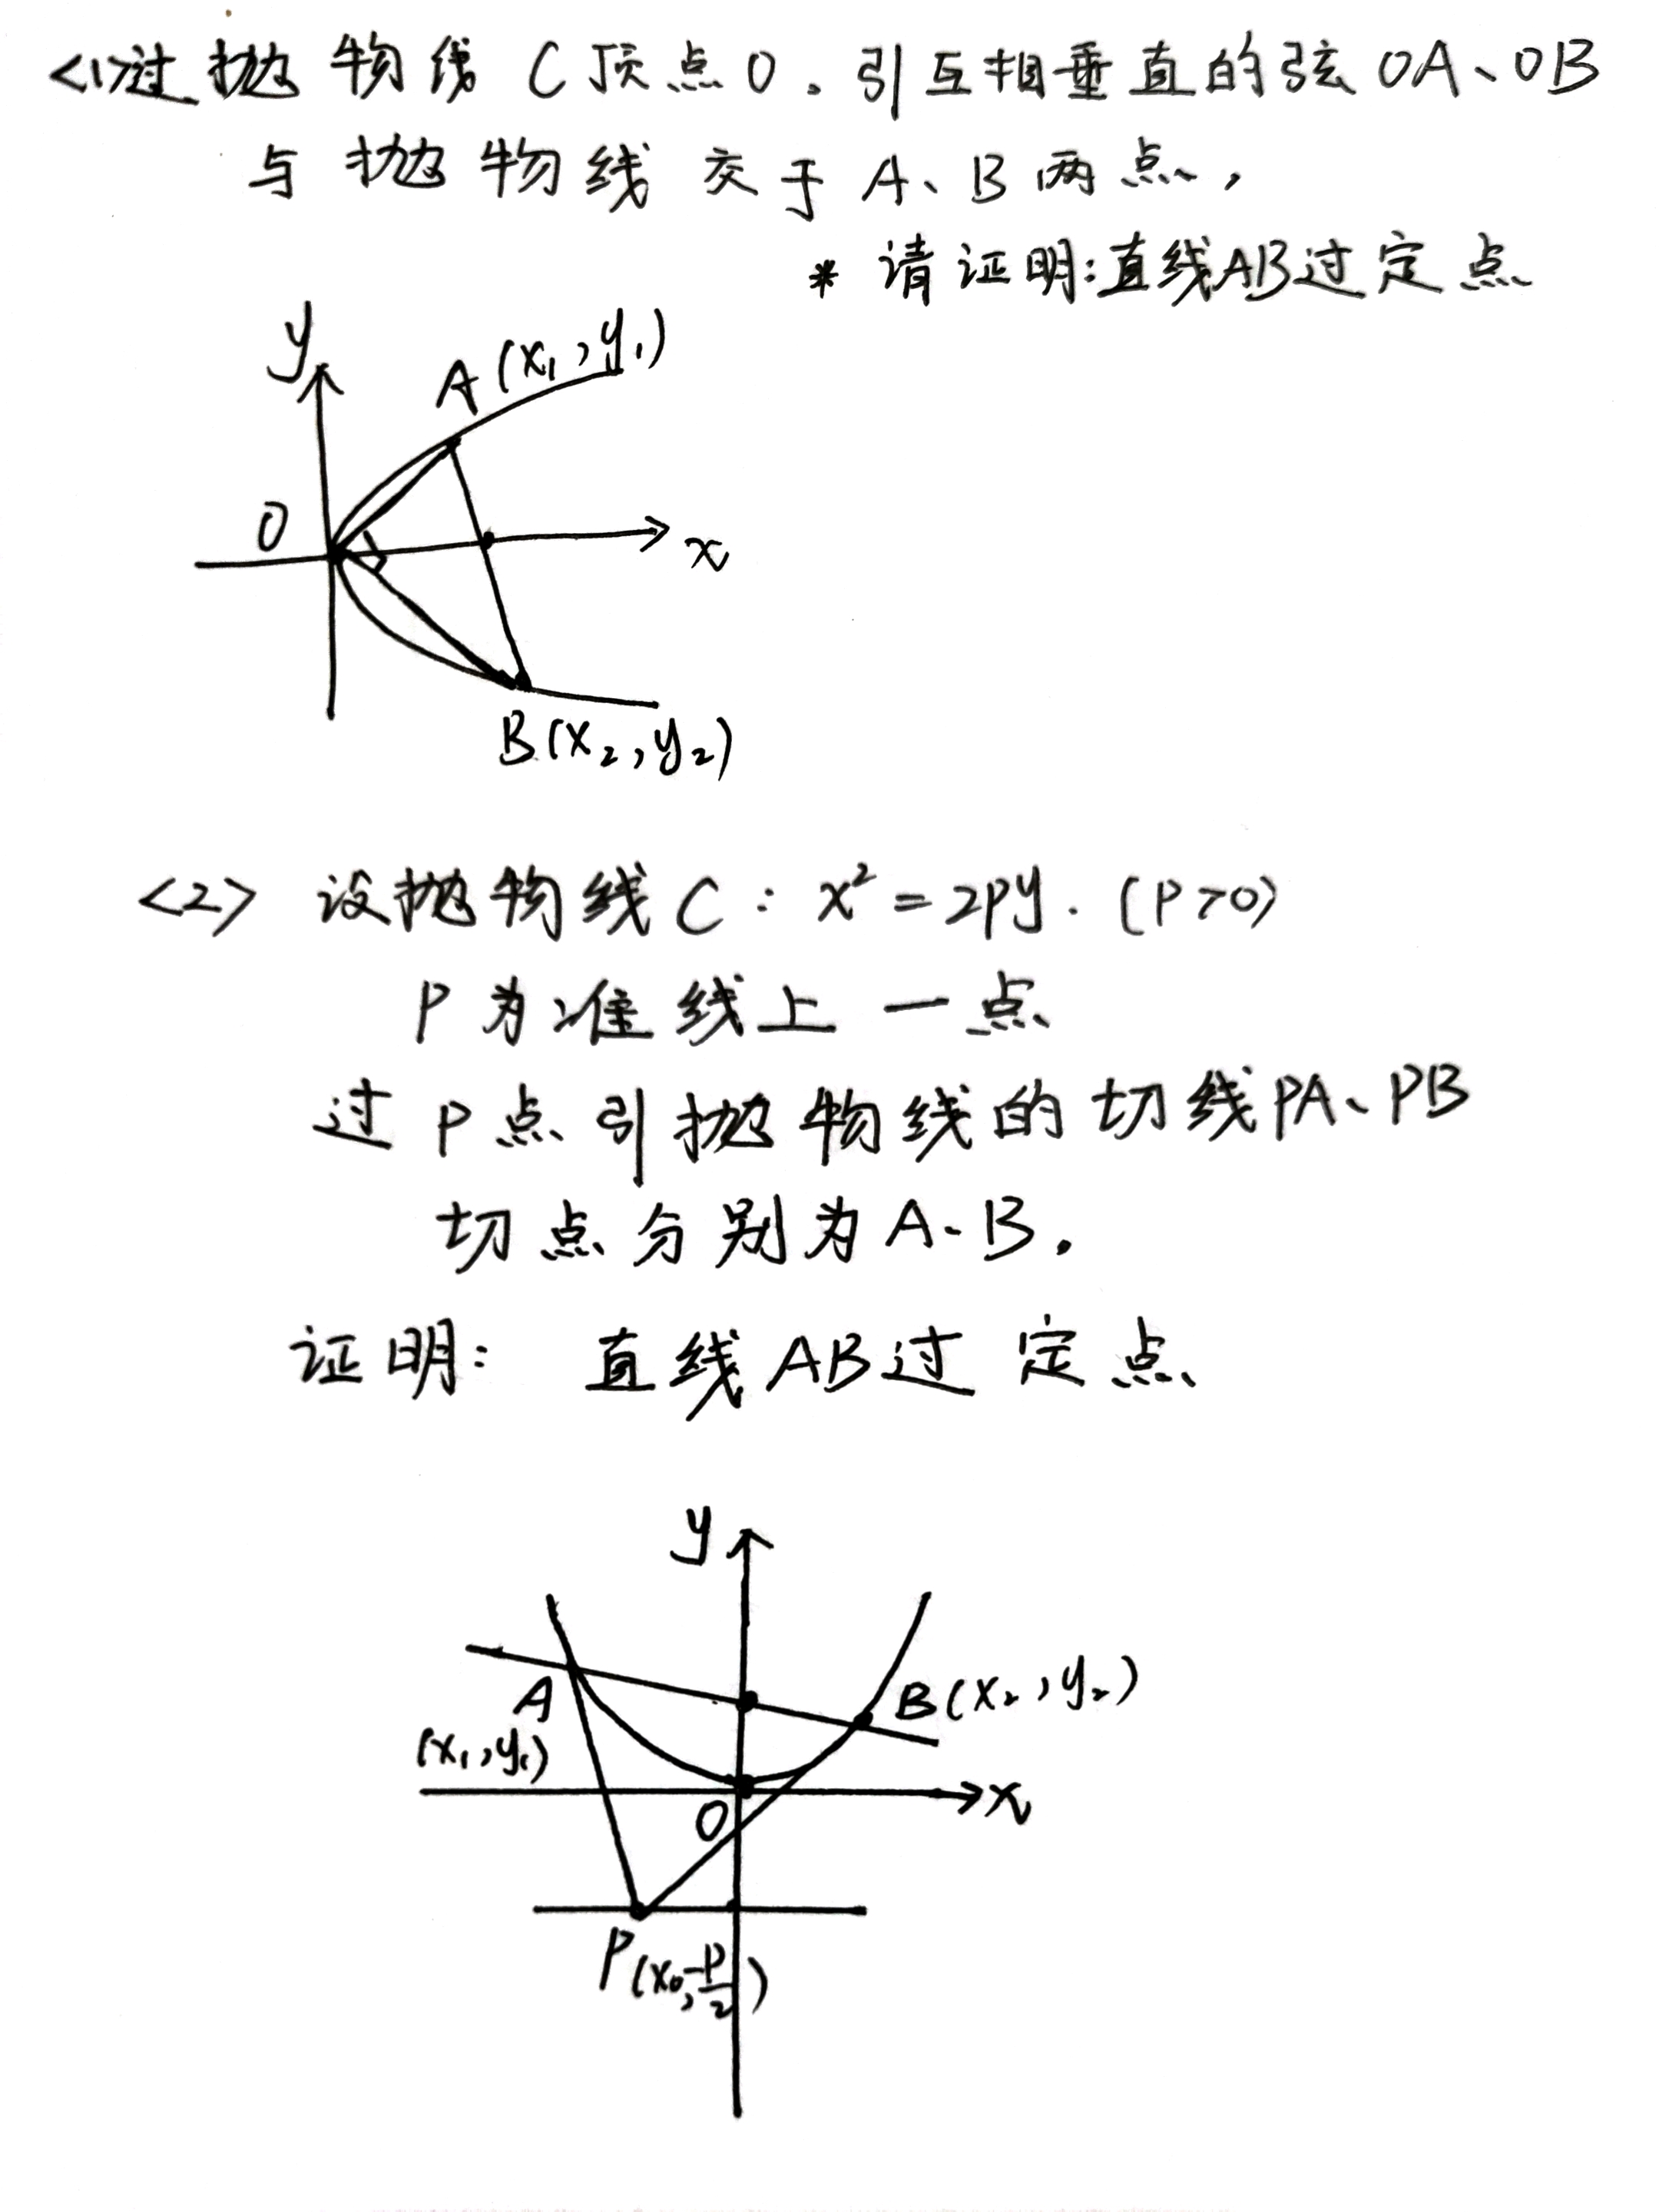 <1>过抛物线C顶点O。引互相垂直的弦OA、OB
与抛物线交于A、B两点,
* 请证明:直线AB过定点
y
A(x₁,y₁)
O
x
B(x₂,y₂)
<2> 设抛物线C: x²=2py. (P>0)
P为准线上一点
过P点引抛物线的切线PA、PB
切点分别为A、B。
证明: 直线AB过定点
y
A
B(x₂,y₂)
(x₁,y₁)
x
O
P(x₀,-p/2)